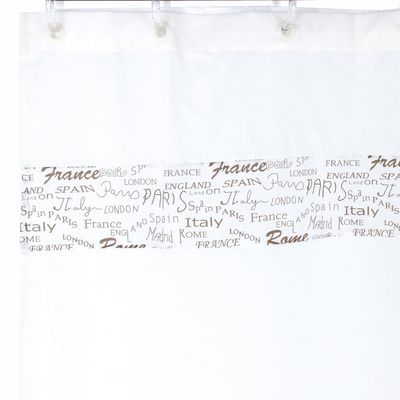 France Paris FRANCE Paris FRANCE Fra
CE AND SPAIN LONDON ENGLAND Paris PARIS London SPAIN
Spain PARIS Italy LONDON Spain Spain PARIS Italy LONDON
Italy France ENGLAND Madrid Italy France ENGLAND Madrid Italy
OME LONDON Rome ROME LONDON Rome ROME
FRANCE FRANCE